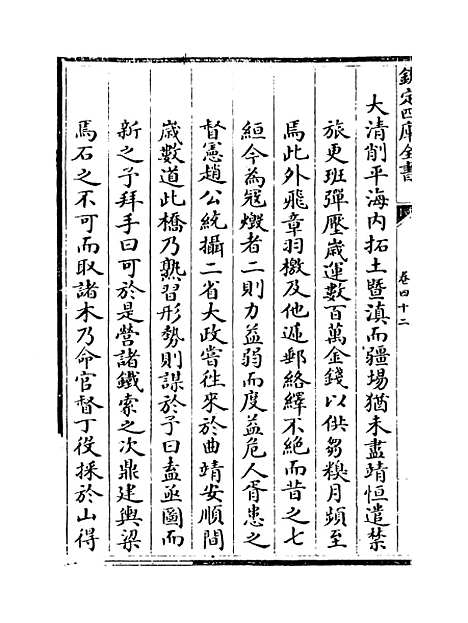 欽定四庫全書
卷四十二
大清削平海内拓土暨滇而疆場猶未盡靖恒遣禁
旅更班彈壓嵗運數百萬金錢以供芻糗月頻至
焉此外飛章羽檄及他遞郵絡繹不絶而昔之七
絙今為寇燬者二則力益弱而度益危人胥患之
督憲趙公統攝二省大政嘗往來於曲靖安順間
嵗數道此橋乃熟習形勢則謀於予曰盍亟圖而
新之予拜手曰可於是營諸鐵索之次鼎建輿梁
焉石之不可而取諸木乃命官督丁役採於山得